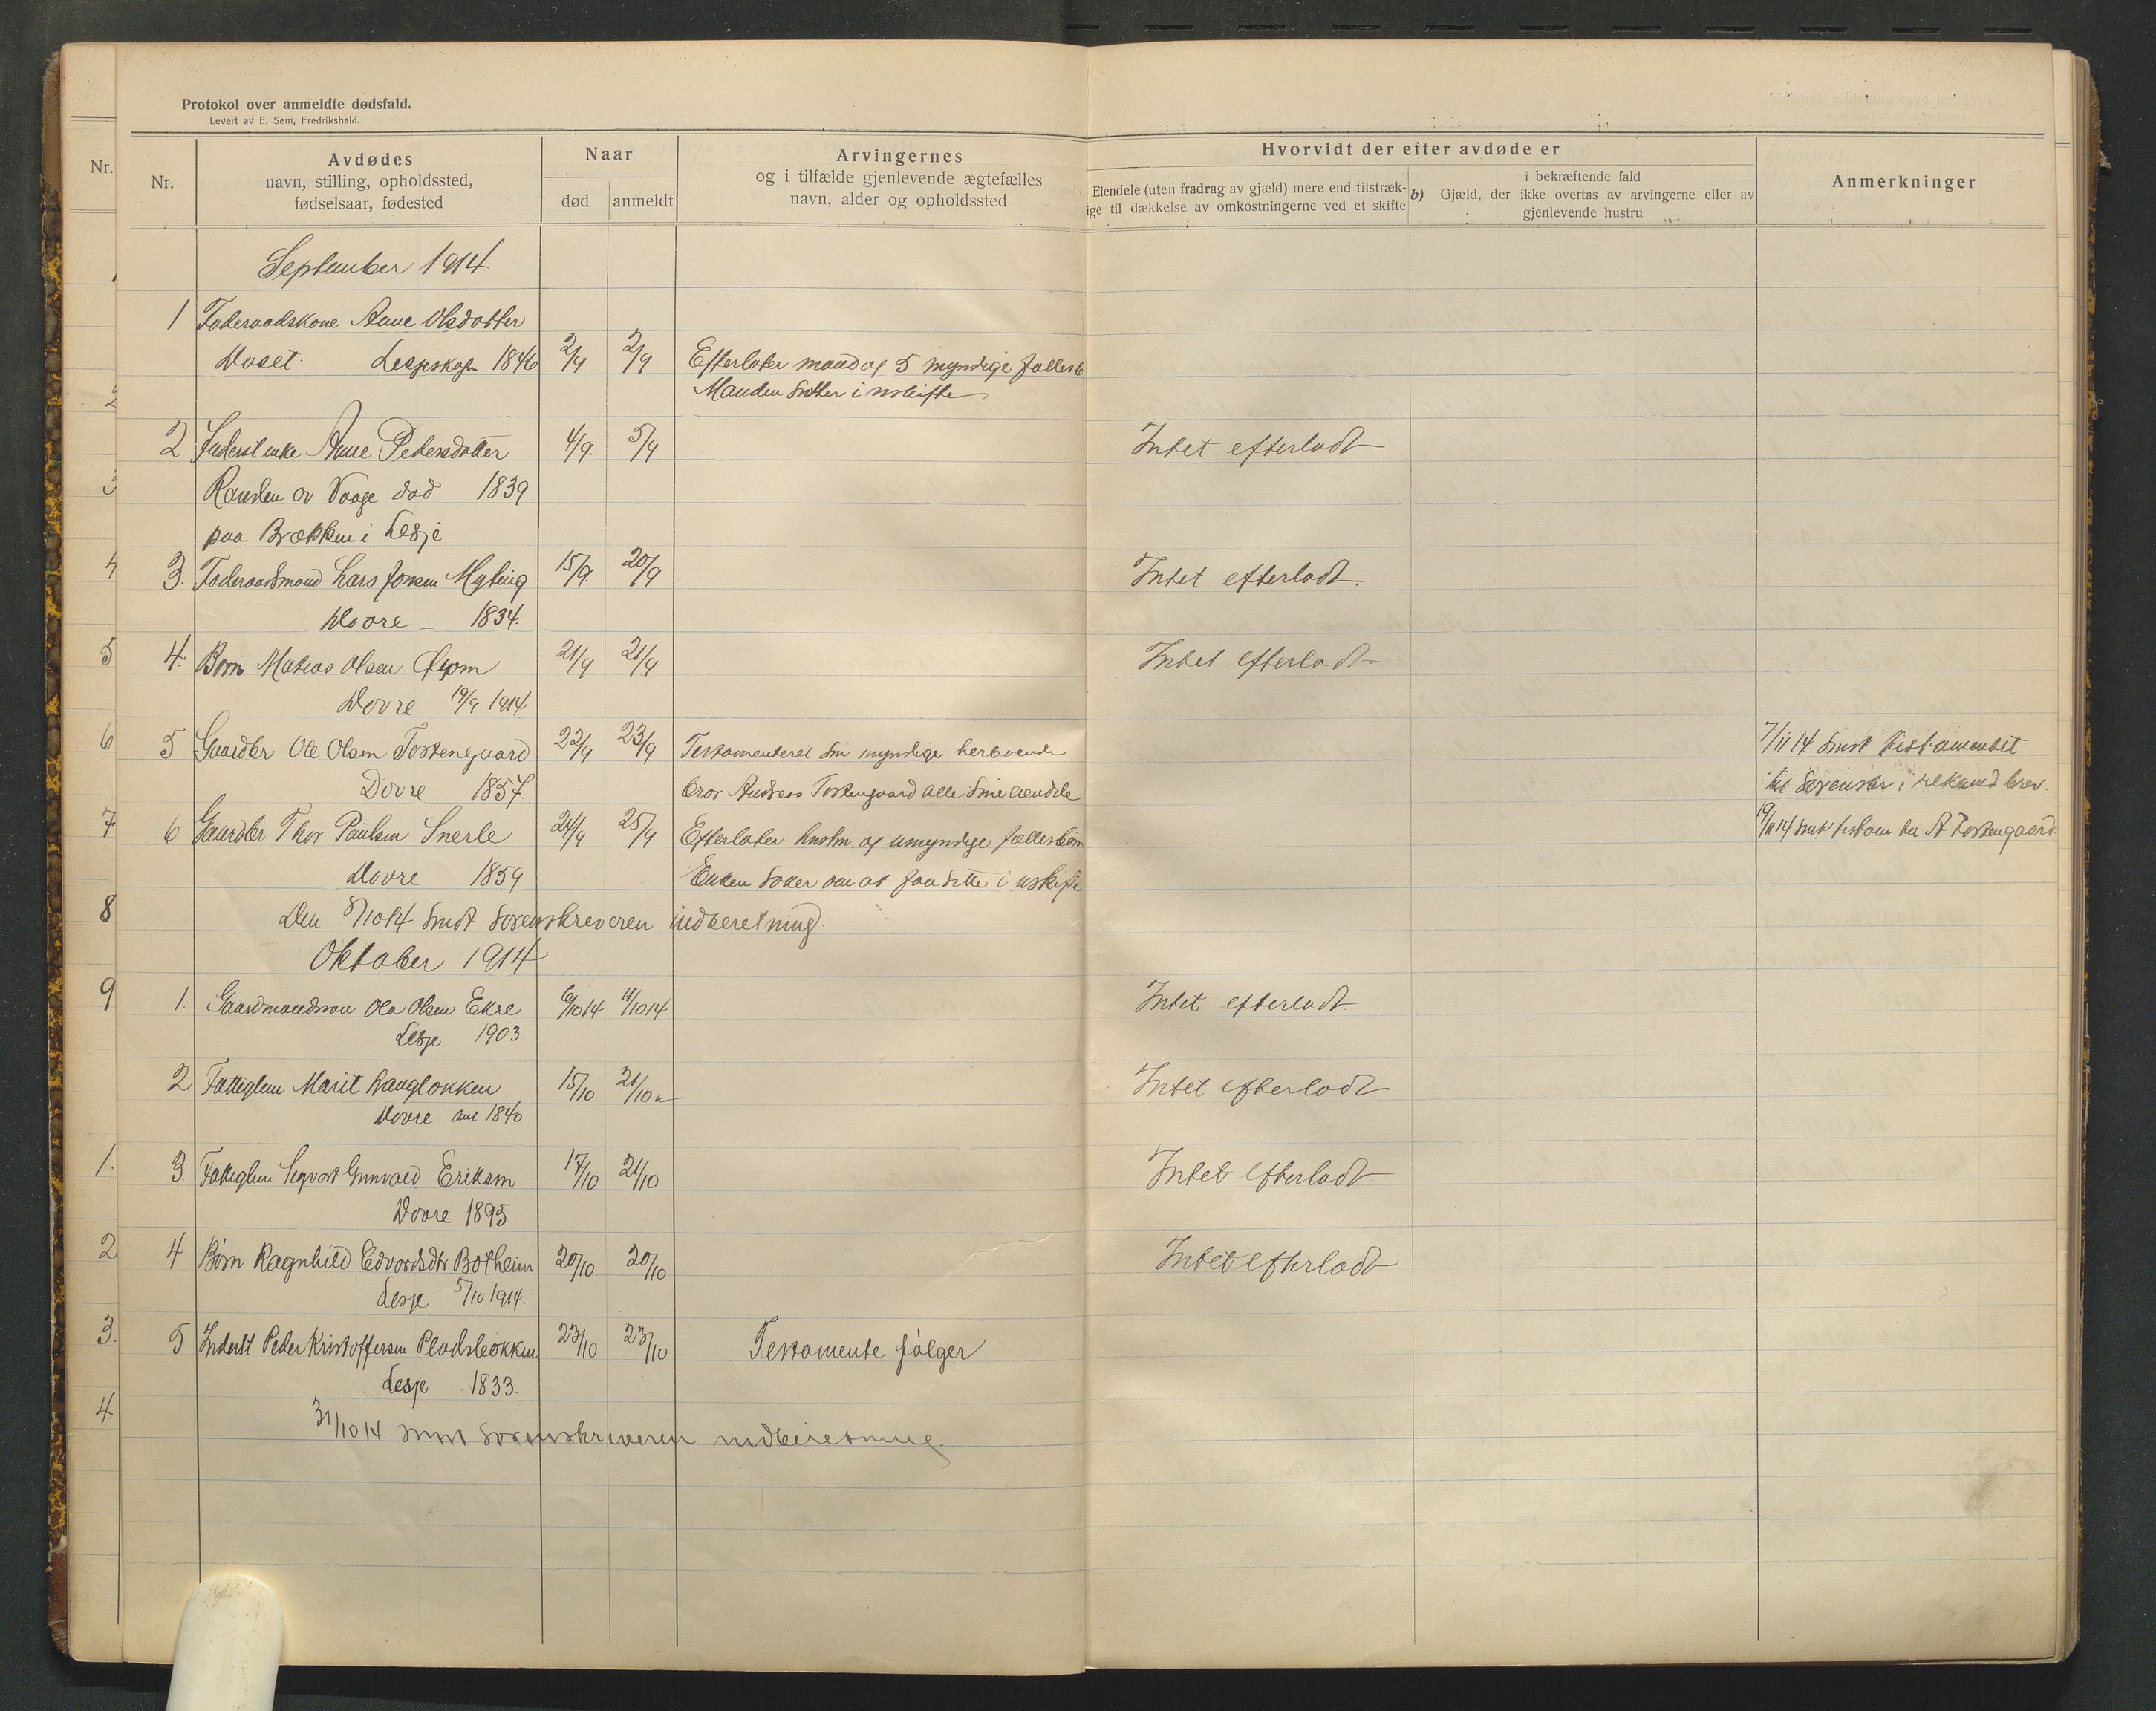 Protokol over anmeldte dødsfald.
Levert av E. Sem, Fredrikshald.
Nr.
Nr.
Avdødes
navn, stilling, opholdssted,
fødselsaar, fødested
Naar
død
anmeldt
Arvingernes
og i tilfælde gjenlevende ægtefælles
navn, alder og opholdssted
Hvorvidt der efter avdøde er
Eiendele (uten fradrag av gjæld) mere end tilstræk-
ige til dækkelse av omkostningerne ved et skifte
b)
i bekræftende fald
Gjæld, der ikke overtas av arvingerne eller av
gjenlevende hustru
Anmerkninger
September 1914
1 Føderaadskone Anne Olsdatter
Lesjeskogen 1846 2/9 2/9 Efterlater mand og 5 myndige
Manden sitter i uskifte
2 Anne Pedersdatter 4/9. 5/9 Intet efterladt
Randen av Vaage død 1839
paa Brækken i Lesje
3. Føderaadsmand Lars Jonsen Myhing 15/9. 20/9 Intet efterladt.
Dovre - 1834.
4. Barn Matias Olsen 21/9 21/9 Intet efterladt
Dovre 19/9 1914
5 Gaardbr Ole Olsen Tostengaard 22/9 23/9 Testamenteret sin myndige
Dovre 1857. bror Andreas Tostengaard alle sine
7/11 14 sendt testamentet
til Sorenskr i rekomd brev.
6 Gaardbr Thor Paulsen Snerle 24/9 25/9 Efterlater hustru og umyndige fællesbørn
19/11 14 sendt testam til A Tostengaard.
Dovre 1859 Enken søker om at faa sitte i uskifte
Den 8/10 14 sendt sorenskriveren indberetning.
Oktober 1914
1. Gaardmandssøn Ola Olsen Ekre 6/10 14 11/10 14 Intet efterladt.
Lesje 1903
2 Fattiglem Marit Haugløkken 15/10 21/10 Intet efterladt
Dovre 1840
3. Fattiglem Sigvart Gunvald Eriksen 17/10 21/10 Intet efterladt
Dovre 1895
4 Barn Ragnhild Edvardsdtr Botheim 20/10 20/10 Intet efterladt
Lesje 5/10 1914.
5 Inderst Peder Kristoffersen 23/10 23/10 Testamente følger
Lesje 1833.
31/10 14 sendt sorenskriveren indberetning.
3
4
5
6
7
8
9
1.
2
3.
4.